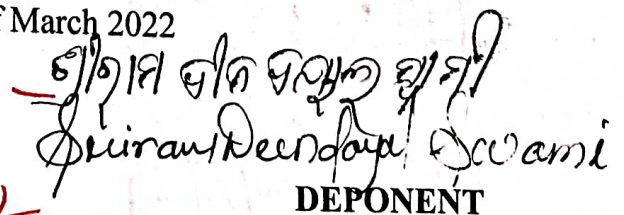 f March 2022
ଶ୍ରୀରାମ ଦୀନ ଦୟାଲ ସ୍ୱାମୀ
Sriram Deendayal Swami
DEPONENT